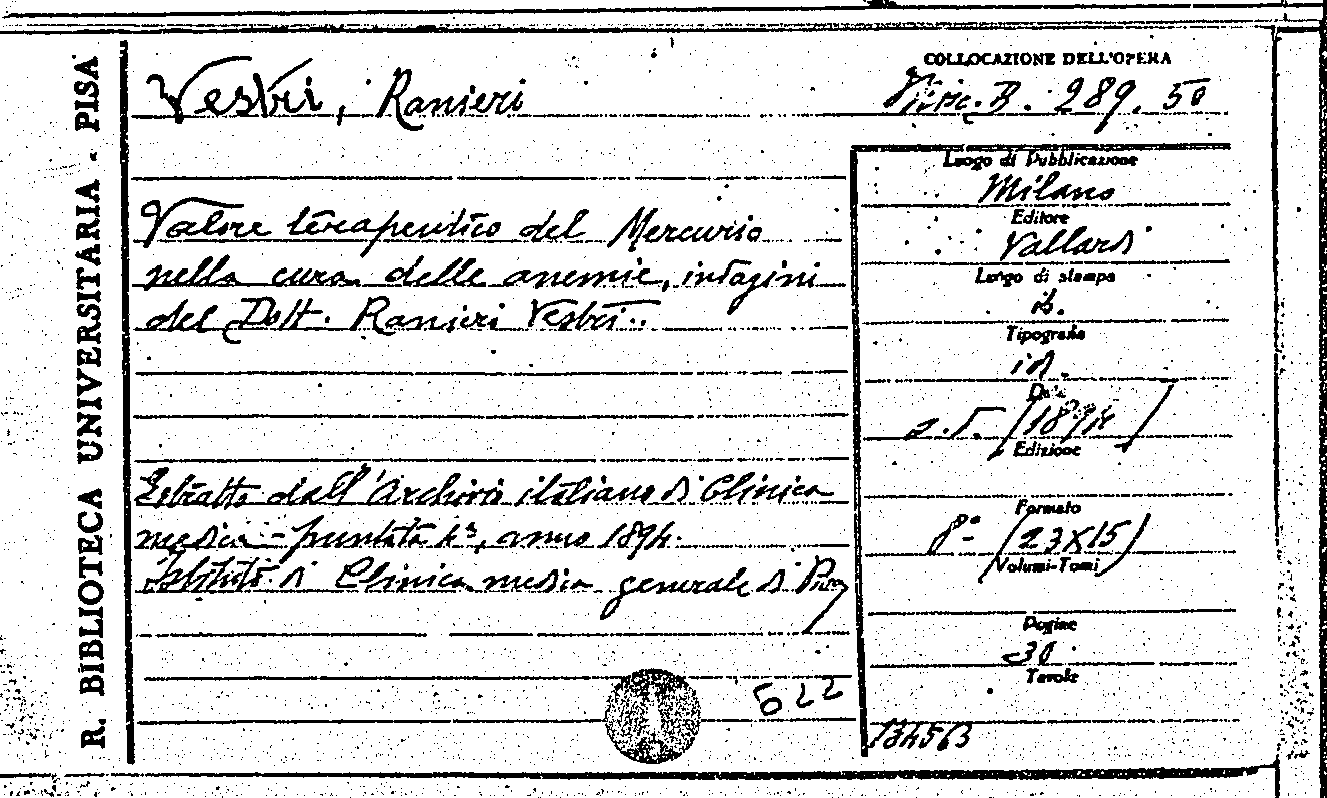 R. BIBLIOTECA UNIVERSITARIA - PISA
Vestri, Ranieri
COLLOCAZIONE DELL'OPERA
Misc. B. 289. 50
Valore terapeutico del Mercurio
nella cura delle anemie, indagini
del Dott. Ranieri Vestri..
Estratto dall'Archivio italiano di Clinica
medica - puntata 4ª, anno 1894.
Istituto di Clinica medica generale di Pisa
522
Luogo di Pubblicazione
Milano
Editore
Vallardi
Luogo di stampa
id.
Tipografia
id.
Data
s. d. [1894]
Edizione
Formato
8° (23X15)
Volumi-Tomi
Pagine
30
Tavole